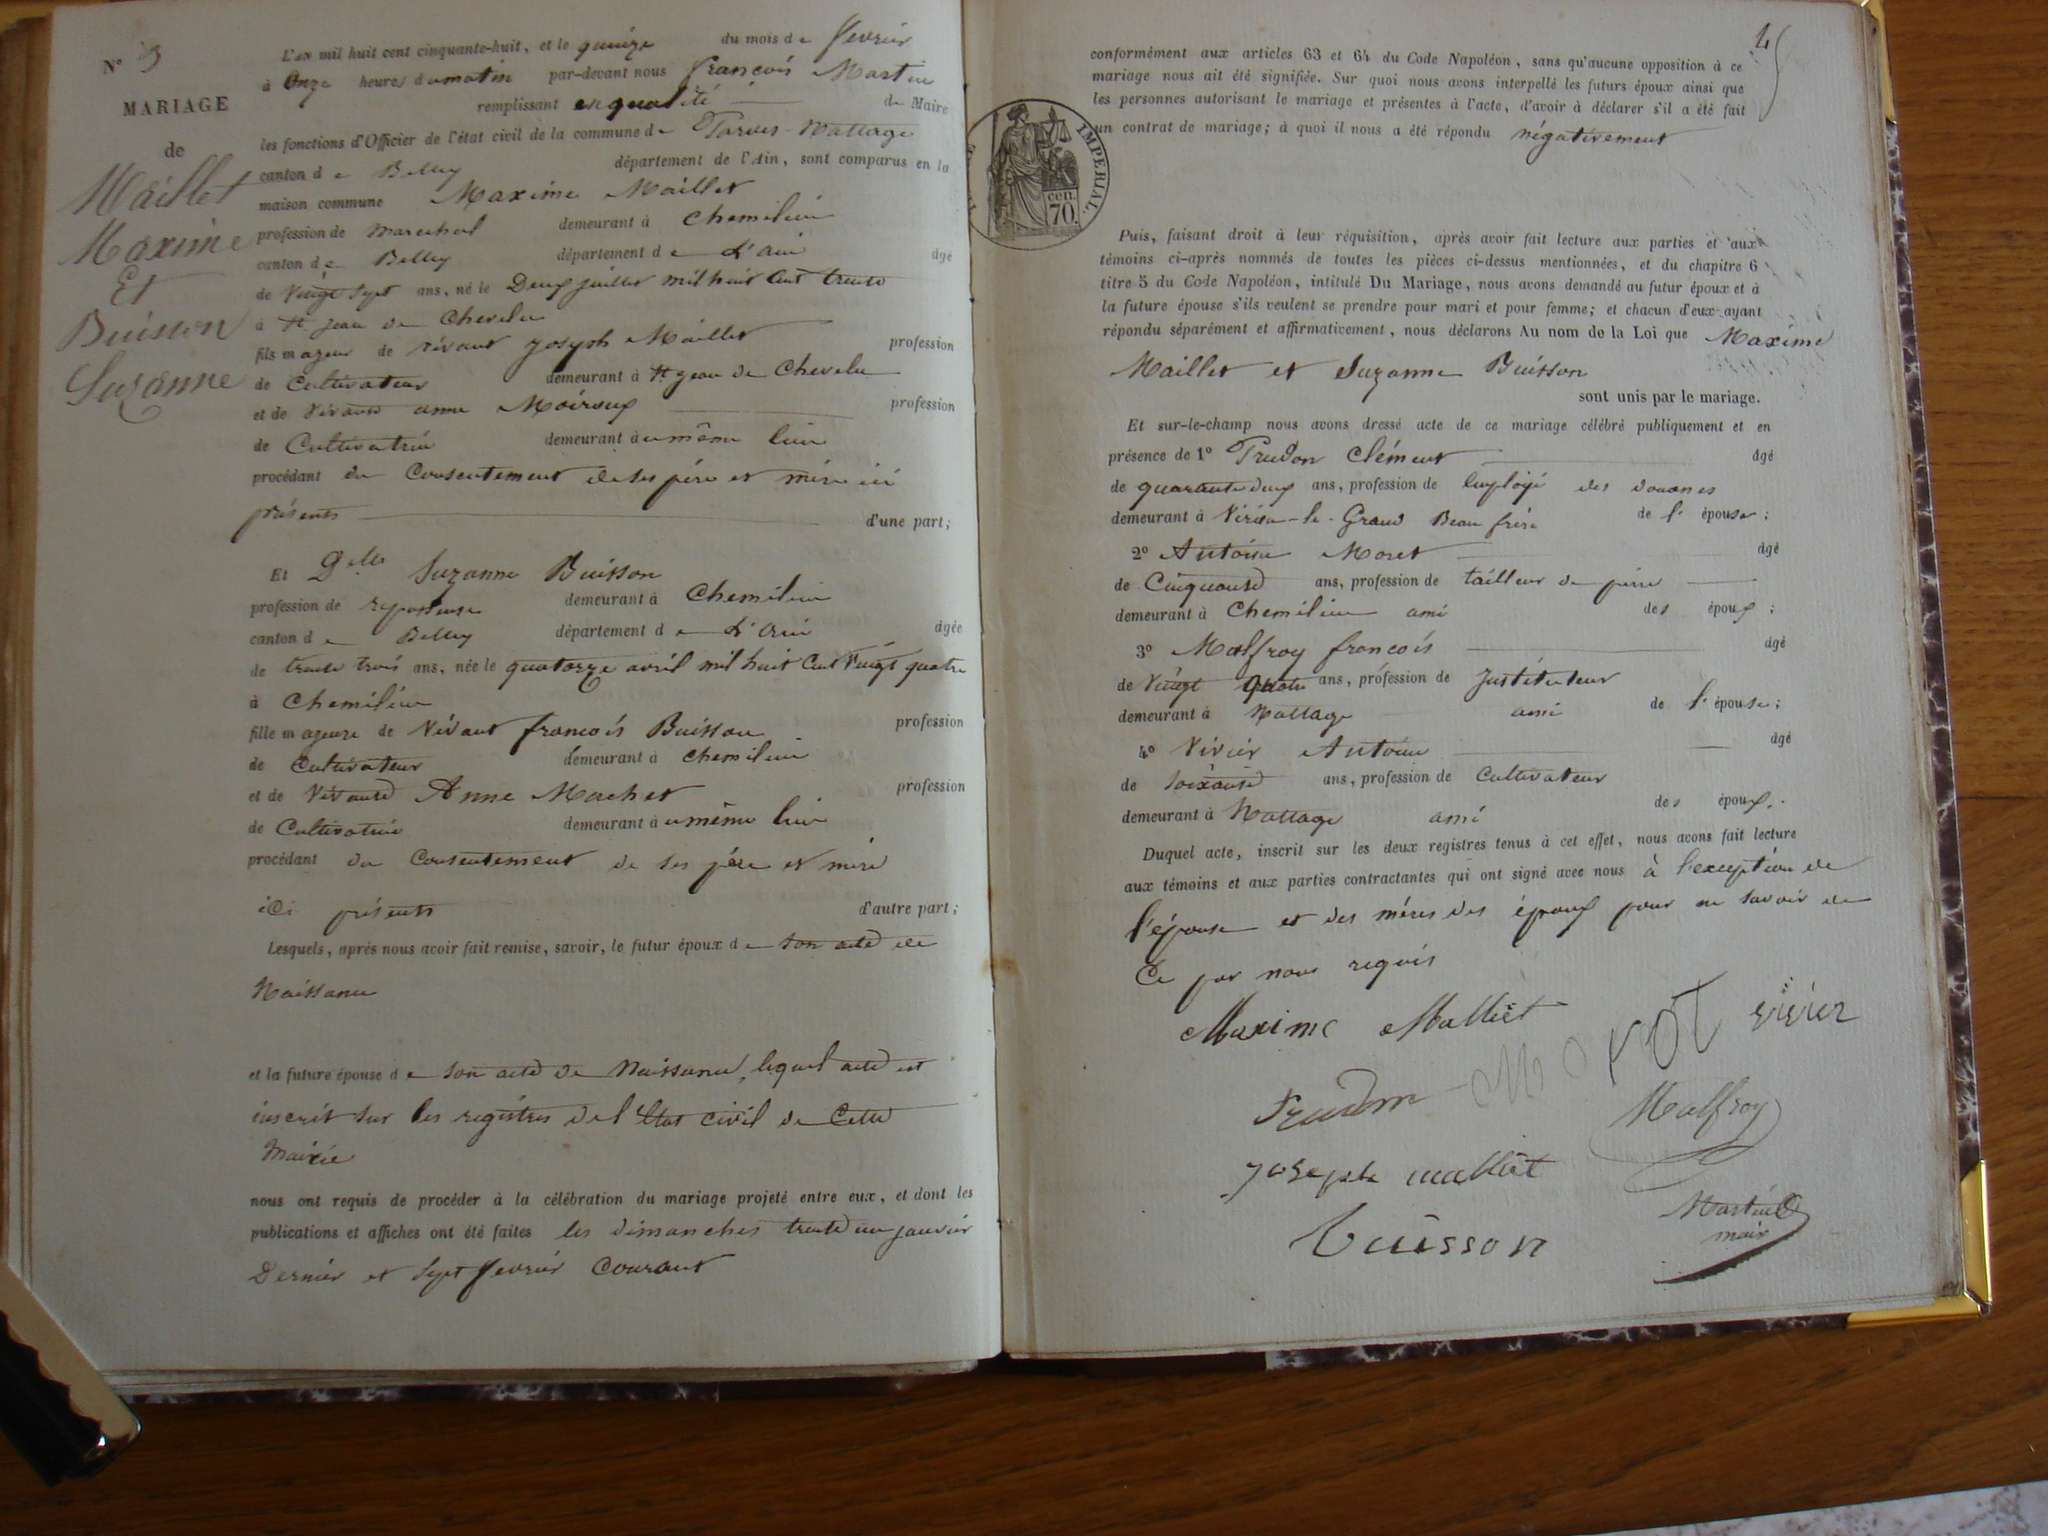 N° 3
MARIAGE
de
Maillet
Maxime
Et
Buisson
Suzanne
L'an mil huit cent cinquante-huit, et le quinze du mois de fevrier
à Onze heures du matin par-devant nous françois Martin
remplissant en qualité de Maire
les fonctions d'Officier de l'état civil de la commune de Parves-Nattage
canton de Belley département de l'Ain, sont comparus en la
maison commune Maxime Maillet
profession de marechal demeurant à Chemilieu
canton de Belley département de L'ain âgé
de Vingt Sept ans, né le Deux juillet mil huit Cent trente
à St jean de Chevelu
fils majeur de vivant joseph Maillet profession
de Cultivateur demeurant à St jean de Chevelu
et de Vivante anne Moiroux profession
de Cultivatrice demeurant au même lieu
procédant du Consentement de ses père et mère ici
présents d'une part;
Et Delle Suzanne Buisson
profession de repasseuse demeurant à Chemilieu
canton de Belley département de L'Ain âgée
de trente trois ans, née le quatorze avril mil huit Cent Vingt quatre
à Chemilieu
fille majeure de Vivant françois Buisson profession
de Cultivateur demeurant à chemilieu
et de Vivante Anne Machet profession
de Cultivatrice demeurant au même lieu
procédant du Consentement de ses père et mère
ici présents d'autre part;
Lesquels, après nous avoir fait remise, savoir, le futur époux de son acte de
Naissance
et la future épouse de son acte de Naissance, lequel acte est
inscrit sur les registres de l'Etat civil de Cette
Mairie
nous ont requis de procéder à la célébration du mariage projeté entre eux, et dont les
publications et affiches ont été faites les dimanches trente un janvier
Dernier et Sept fevrier Courant
conformément aux articles 63 et 64 du Code Napoléon, sans qu'aucune opposition à ce
mariage nous ait été signifiée. Sur quoi nous avons interpellé les futurs époux ainsi que
les personnes autorisant le mariage et présentes à l'acte, d'avoir à déclarer s'il a été fait
un contrat de mariage; à quoi il nous a été répondu négativement
IMPÉRIAL.
cen.
70.
Puis, faisant droit à leur réquisition, après avoir fait lecture aux parties et aux
témoins ci-après nommés de toutes les pièces ci-dessus mentionnées, et du chapitre 6
titre 5 du Code Napoléon, intitulé Du Mariage, nous avons demandé au futur époux et à
la future épouse s'ils veulent se prendre pour mari et pour femme; et chacun d'eux ayant
répondu séparément et affirmativement, nous déclarons Au nom de la Loi que Maxime
Maillet et Suzanne Buisson
sont unis par le mariage.
Et sur-le-champ nous avons dressé acte de ce mariage célébré publiquement et en
présence de 1° Prudon Clément âgé
de quarante deux ans, profession de Employé des douanes
demeurant à Virieu-le-Grand Beau frère de l'épouse;
2° Antoine Moret âgé
de Cinquante ans, profession de tailleur de pierre
demeurant à Chemilieu ami des époux;
3° Malfroy françois âgé
de Vingt quatre ans, profession de Instituteur
demeurant à Nattage ami de l'épouse;
4° Vivier Antoine âgé
de Soixante ans, profession de Cultivateur
demeurant à Nattage ami des époux.
Duquel acte, inscrit sur les deux registres tenus à cet effet, nous avons fait lecture
aux témoins et aux parties contractantes qui ont signé avec nous à l'exception de
l'épouse et des mères des époux pour ne savoir de
Ce par nous requis
Maxime Malliet
Morot vivier
Prudon
Malfroy
joseph malliet
Martin
maire
buisson